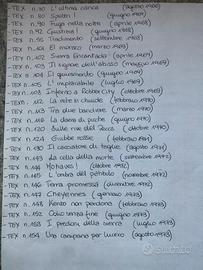 - TEX n. 70 L'ultima carica (agosto 1966)
- TEX n. 80 Spettri! (giugno 1967)
- TEX n. 90 Fuga nella notte (aprile 1968)
- TEX n. 92 Quantrill! (giugno 1968)
- TEX n. Tradimento (settembre 1968)
- TEX n. 101 El Morisco (marzo 1969)
- TEX n. 102 Sierra Encantada (aprile 1969)
- TEX n. 103 Il signore dell'abisso (maggio 1969)
- TEX n. 104 Il giuramento (giugno 1969)
- TEX n. 105 (luglio 1969)
- TEX n. 108 Inferno a Robber City (ottobre 1969)
- TEX n. 112 La rete si chiude (febbraio 1970)
- TEX n. 113 Tra due bandiere (marzo 1970)
- TEX n. 116 La dama di picche (giugno 1970)
- TEX n. 120 Sulle rive del Pecos (ottobre 1970)
- TEX n. 124 Giubbe rosse (febbraio 1971)
- TEX n. 130 Il cacciatore di taglie (agosto 1971)
- TEX n. 143 La cella della morte (settembre 1972)
- TEX n. 144 Mohaves! (ottobre 1972)
- TEX n. L'ombra del patibolo (novembre 1972)
- TEX n. 146 Terra promessa (dicembre 1972)
- TEX n. 147 Cheyennes (gennaio 1973)
- TEX n. 148 Kento non perdona (febbraio 1973)
- TEX n. 152 Caccia senza fine (giugno 1973)
- TEX n. 153 I predoni della sierra (luglio 1973)
- TEX n. 154 Una campana per Lucero (agosto 1973)
subito